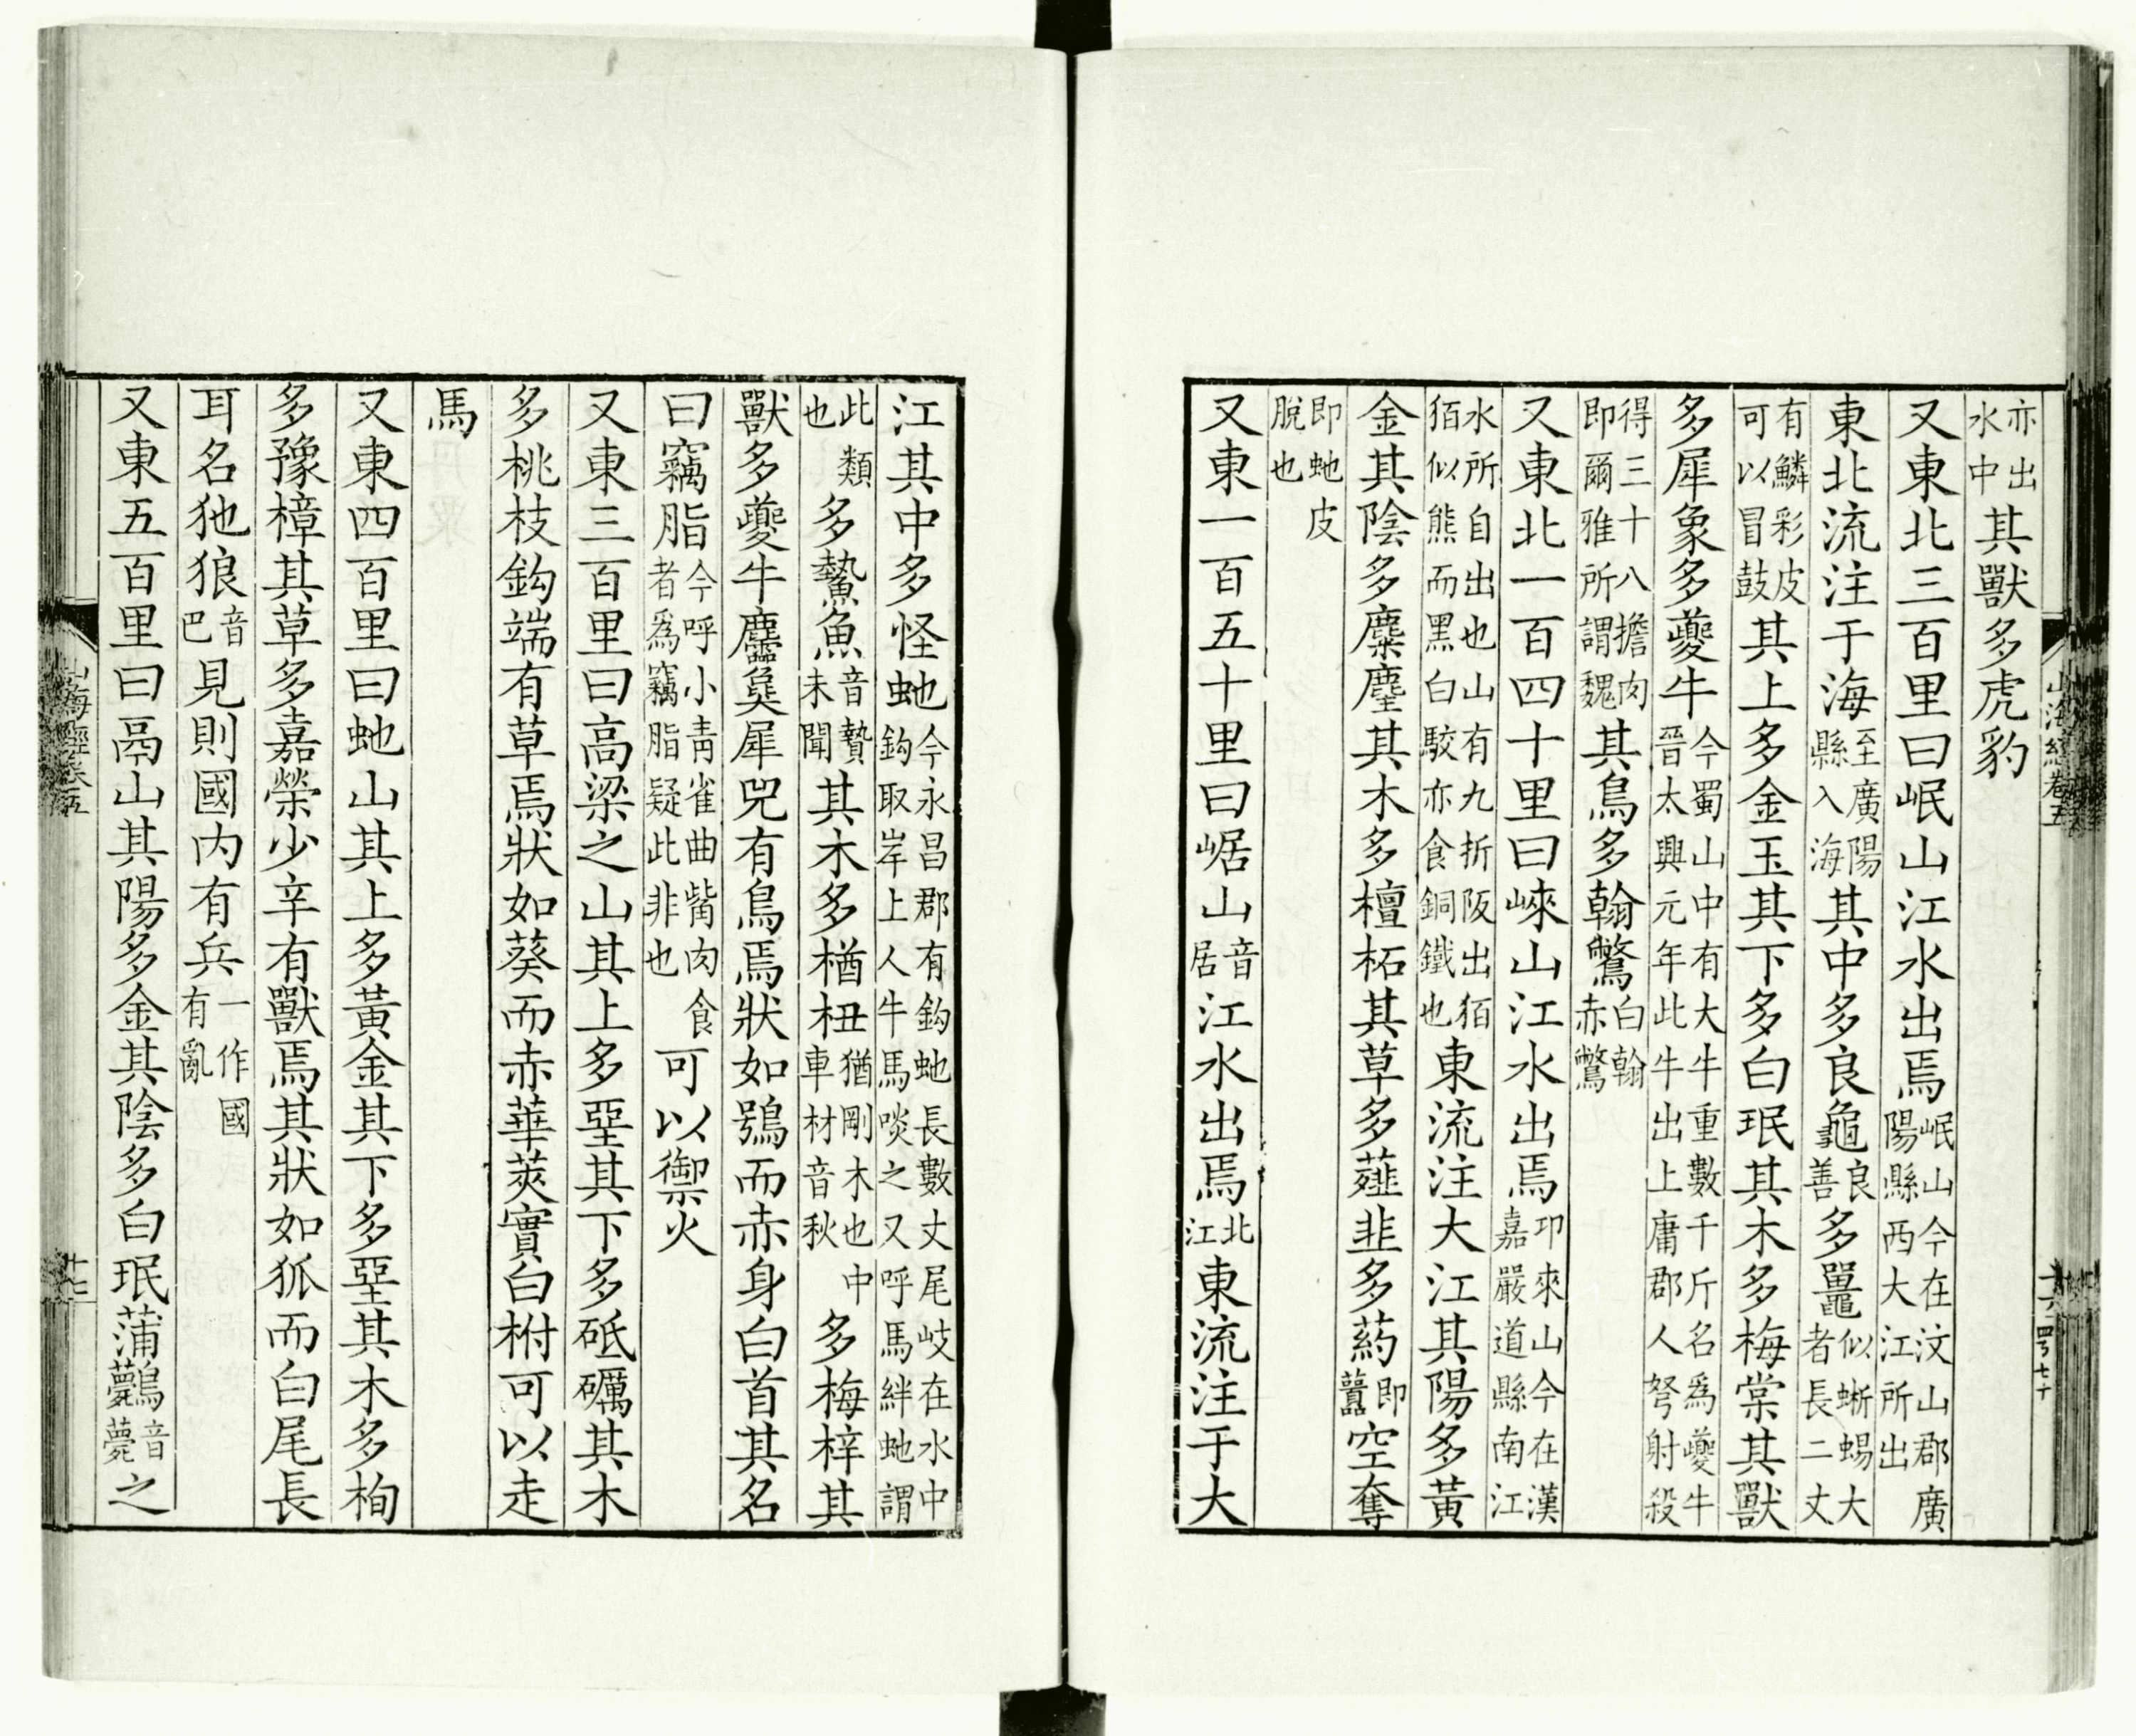 亦出水中其獸多虎豹
又東北三百里曰岷山江水出焉岷山今在汶山郡廣陽縣西大江所出
東北流注于海至廣陽縣入海其中多良龜良善多鼉似蜥蜴大者長二丈
有鱗彩皮可以冒鼓其上多金玉其下多白珉其木多梅棠其獸
多犀象多夔牛今蜀山中有大牛重數千斤名為夔牛晉太興元年此牛出上庸郡人弩射殺
得三十八擔肉即爾雅所謂魏其鳥多翰鷩白翰赤鷩
又東北一百四十里曰崍山江水出焉邛來山今在漢嘉嚴道縣南江
水所自出也山有九折阪出狛狛似熊而黑白駮亦食銅鐵也東流注大江其陽多黃
金其陰多麋麈其木多檀柘其草多薤韭多葯即蘁空奪
即虵皮脫也
又東一百五十里曰崌山音居江水出焉北江東流注于大
山海經卷五
十六
江其中多怪虵今永昌郡有鈎虵長數丈尾岐在水中鈎取岸上人牛馬啖之又呼馬絆虵謂
此類也多鷙魚音贄未聞其木多楢杻楢剛木也中車材音秋多梅梓其
獸多夔牛麢㚟犀兕有鳥焉狀如鴞而赤身白首其名
曰竊脂今呼小青雀曲觜肉食者為竊脂疑此非也可以禦火
又東三百里曰高梁之山其上多堊其下多砥礪其木
多桃枝鈎端有草焉狀如葵而赤華莢實白柎可以走
馬
又東四百里曰虵山其上多黃金其下多堊其木多栒
多豫樟其草多嘉榮少辛有獸焉其狀如狐而白尾長
耳名㹠狼音巴見則國内有兵一作國有亂
又東五百里曰鬲山其陽多金其陰多白珉蒲鸏音薨之
山海經卷五
十七